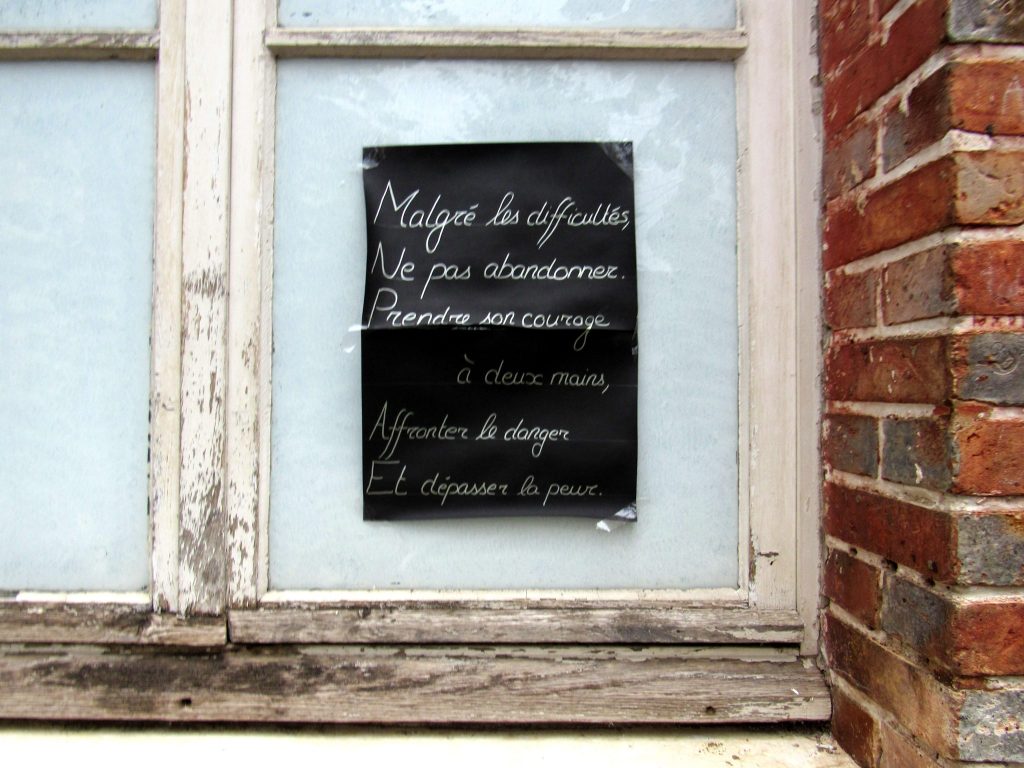 Malgré les difficultés,
Ne pas abandonner.
Prendre son courage
à deux mains,
Affronter le danger
Et dépasser la peur.